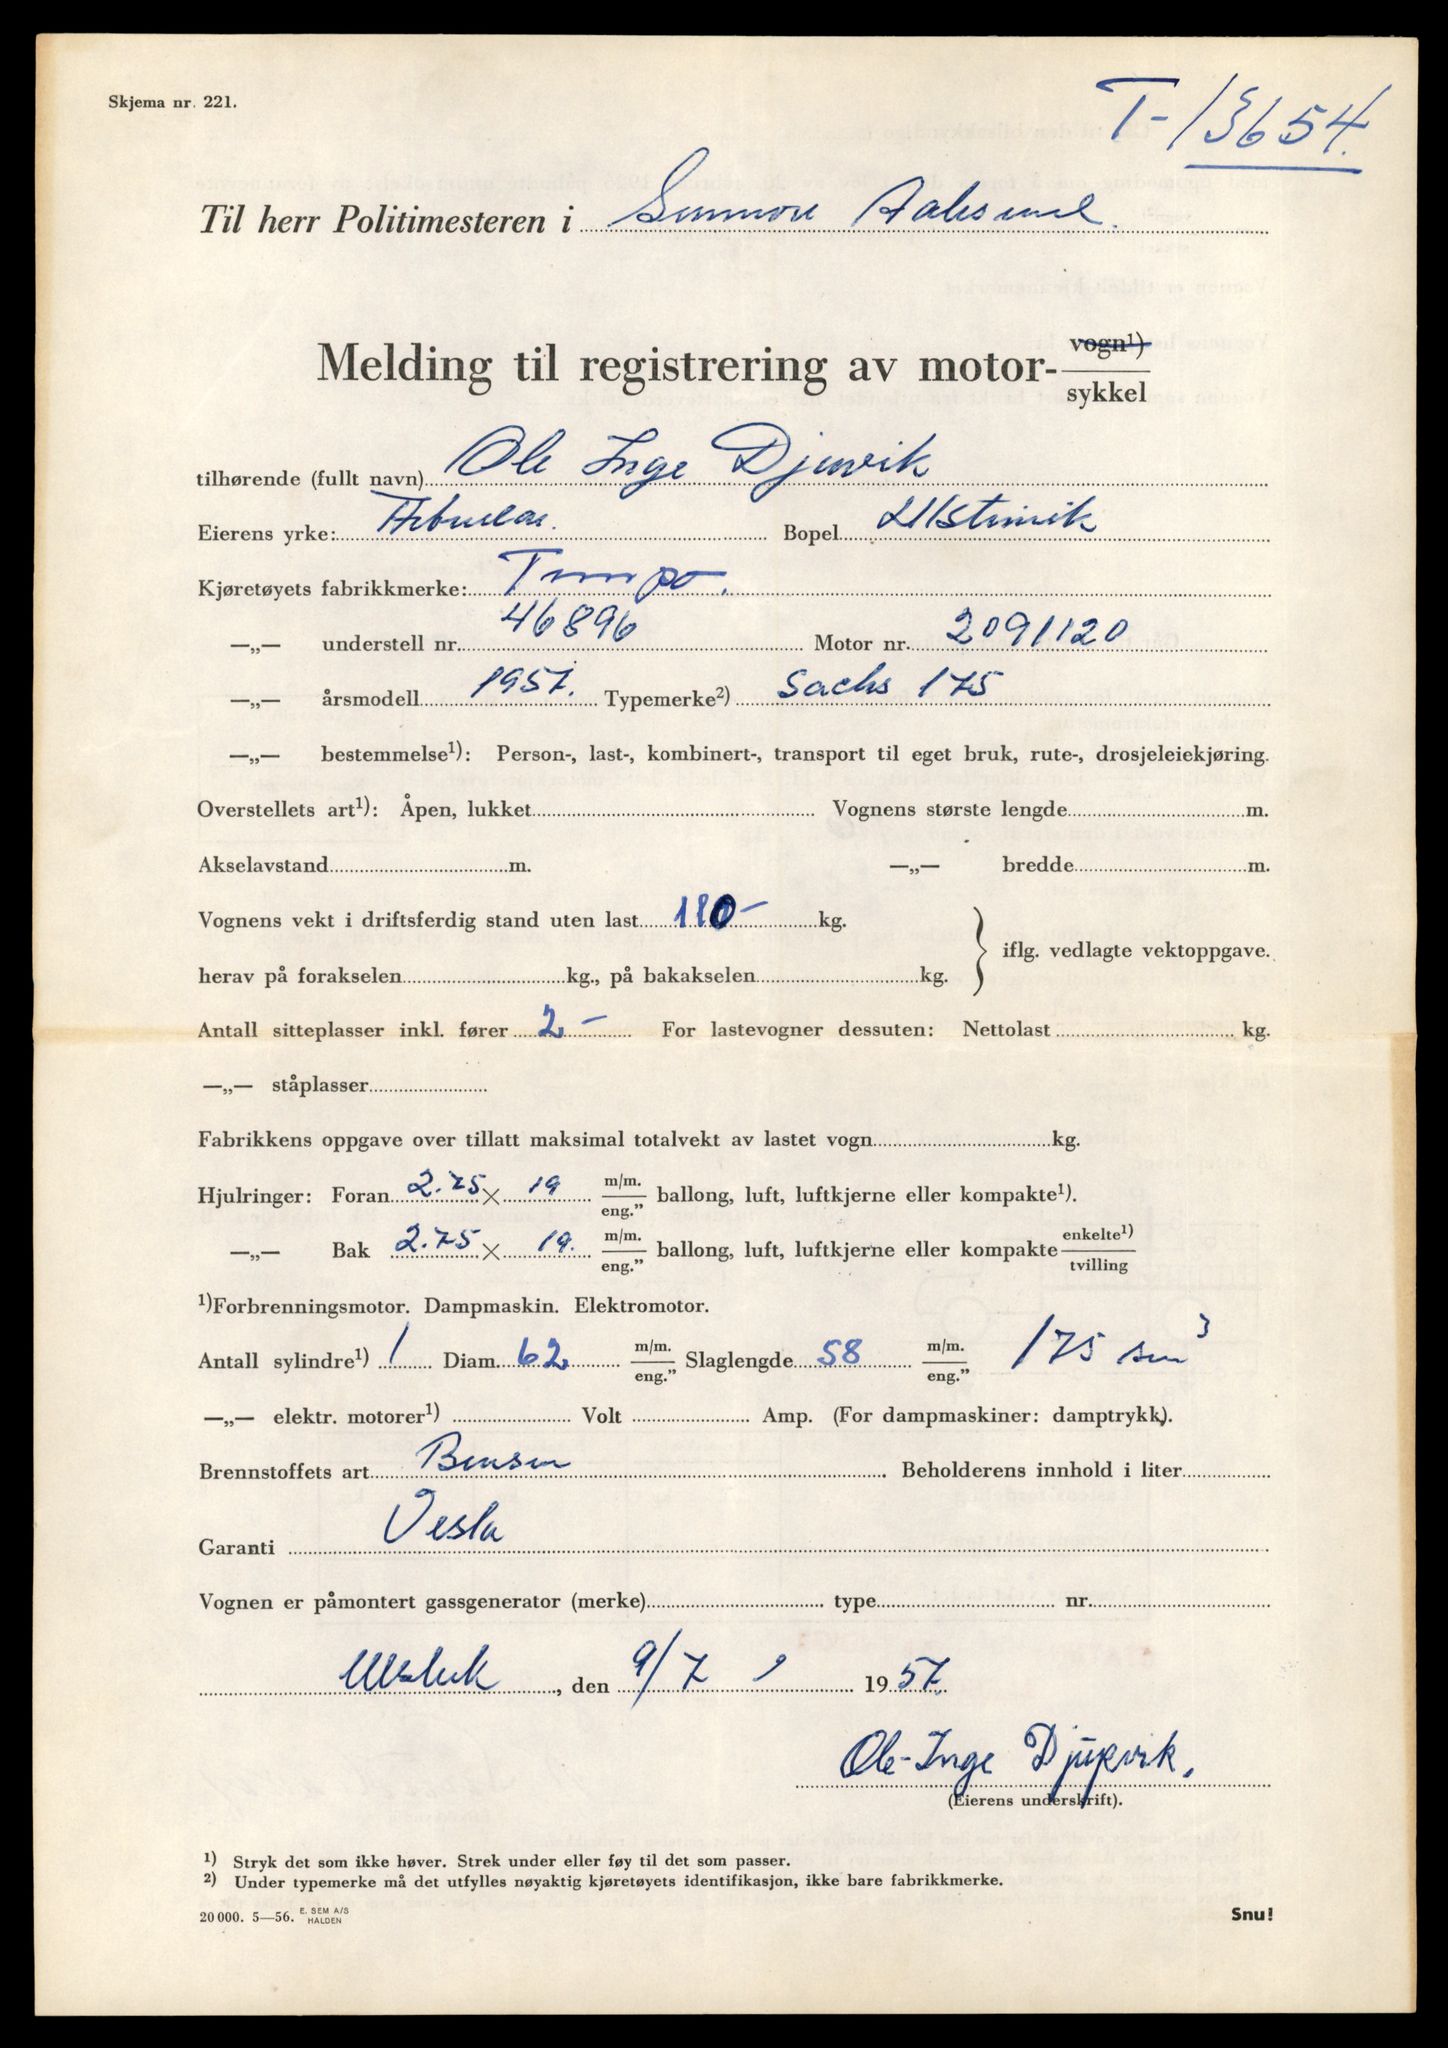 Skjema nr. 221.
T-13654.
Til herr Politimesteren i Sunnmøre Aalesund.
Melding til registrering av motor- vogn¹)
sykkel
tilhørende (fullt navn) Ole Inge Djuvik
Eierens yrke: Arbeider. Bopel Ulsteinvik
Kjøretøyets fabrikkmerke: Tempo.
—„— understell nr. 46896 Motor nr. 2091120
—„— årsmodell 1957. Typemerke²) Sachs 175
—„— bestemmelse¹): Person-, last-, kombinert-, transport til eget bruk, rute-, drosjeleiekjøring.
Overstellets art¹): Åpen, lukket Vognens største lengde m.
Akselavstand m. —„— bredde m.
Vognens vekt i driftsferdig stand uten last 110- kg.
iflg. vedlagte vektoppgave.
herav på forakselen kg., på bakakselen kg.
Antall sitteplasser inkl. fører 2- For lastevogner dessuten: Nettolast kg.
—„— ståplasser
Fabrikkens oppgave over tillatt maksimal totalvekt av lastet vogn kg.
Hjulringer: Foran 2.75 × 19 m/m. eng.” ballong, luft, luftkjerne eller kompakte¹).
—„— Bak 2.75 × 19. m/m. eng.” ballong, luft, luftkjerne eller kompakte enkelte¹) tvilling
¹)Forbrenningsmotor. Dampmaskin. Elektromotor.
Antall sylindre¹) 1 Diam. 62 m/m. eng.” Slaglengde 58 m/m. eng.” 175 sm³
—„— elektr. motorer¹) Volt Amp. (For dampmaskiner: damptrykk).
Brennstoffets art Bensin Beholderens innhold i liter
Garanti Vesta
Vognen er påmontert gassgenerator (merke) type nr.
, den 9/7 1957.
Ole-Inge Djupvik.
(Eierens underskrift).
¹) Stryk det som ikke høver. Strek under eller føy til det som passer.
²) Under typemerke må det utfylles nøyaktig kjøretøyets identifikasjon, ikke bare fabrikkmerke.
20 000. 5—56. E. SEM A/S HALDEN
Snu!